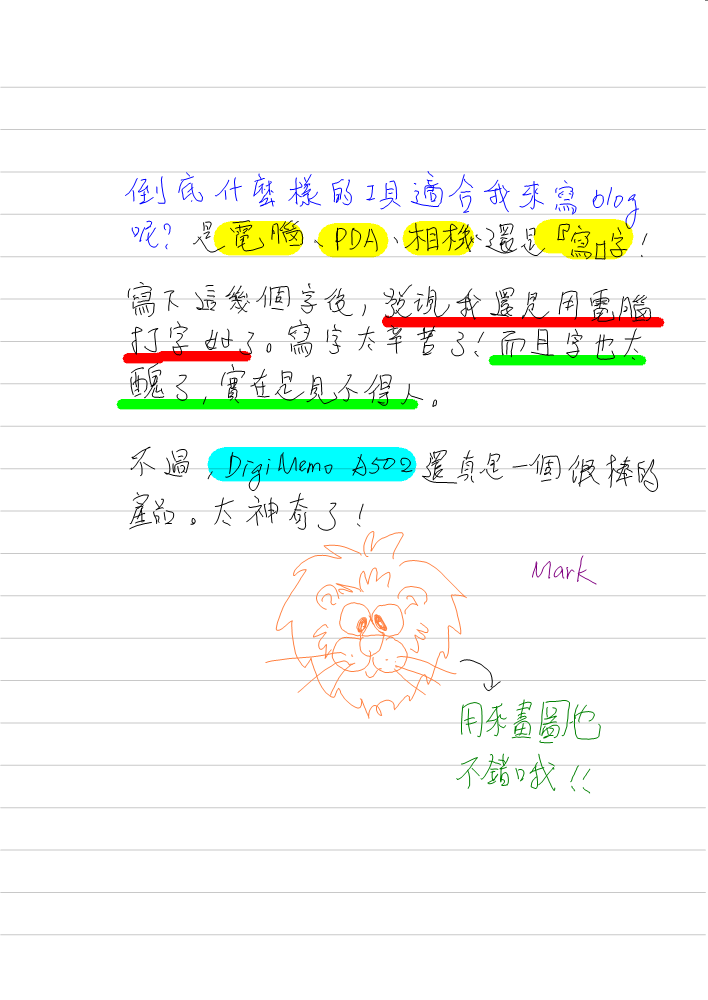 倒底什麼樣的工具適合我來寫blog
呢? 是電腦、PDA、相機、還是『寫』字!
寫下這幾個字後,發現我還是用電腦
打字好了。寫字太辛苦了!而且字也太
醜了,實在是見不得人。
不過,DigiMemo A502還真是一個很棒的
產品。太神奇了!
Mark
用來畫圖也
不錯哦!!